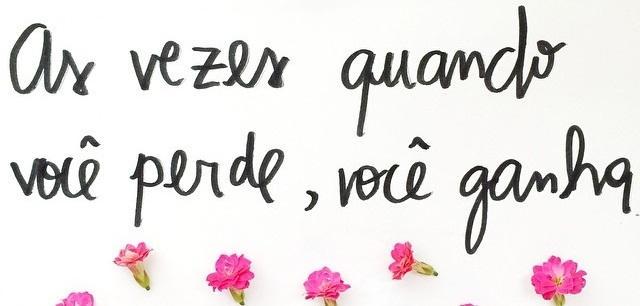 As vezes quando
você perde, você ganha.